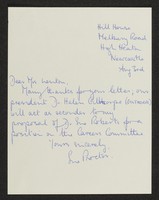 Hill House
Medburn Road
High Heaton
Newcastle
Aug 2nd
Dear Mr.
Many thanks for your letter, our
president Dr Helen
will act as seconder to my
proposal of Dr. Liz Roberts for a
position on the Careers Committee
Yours sincerely